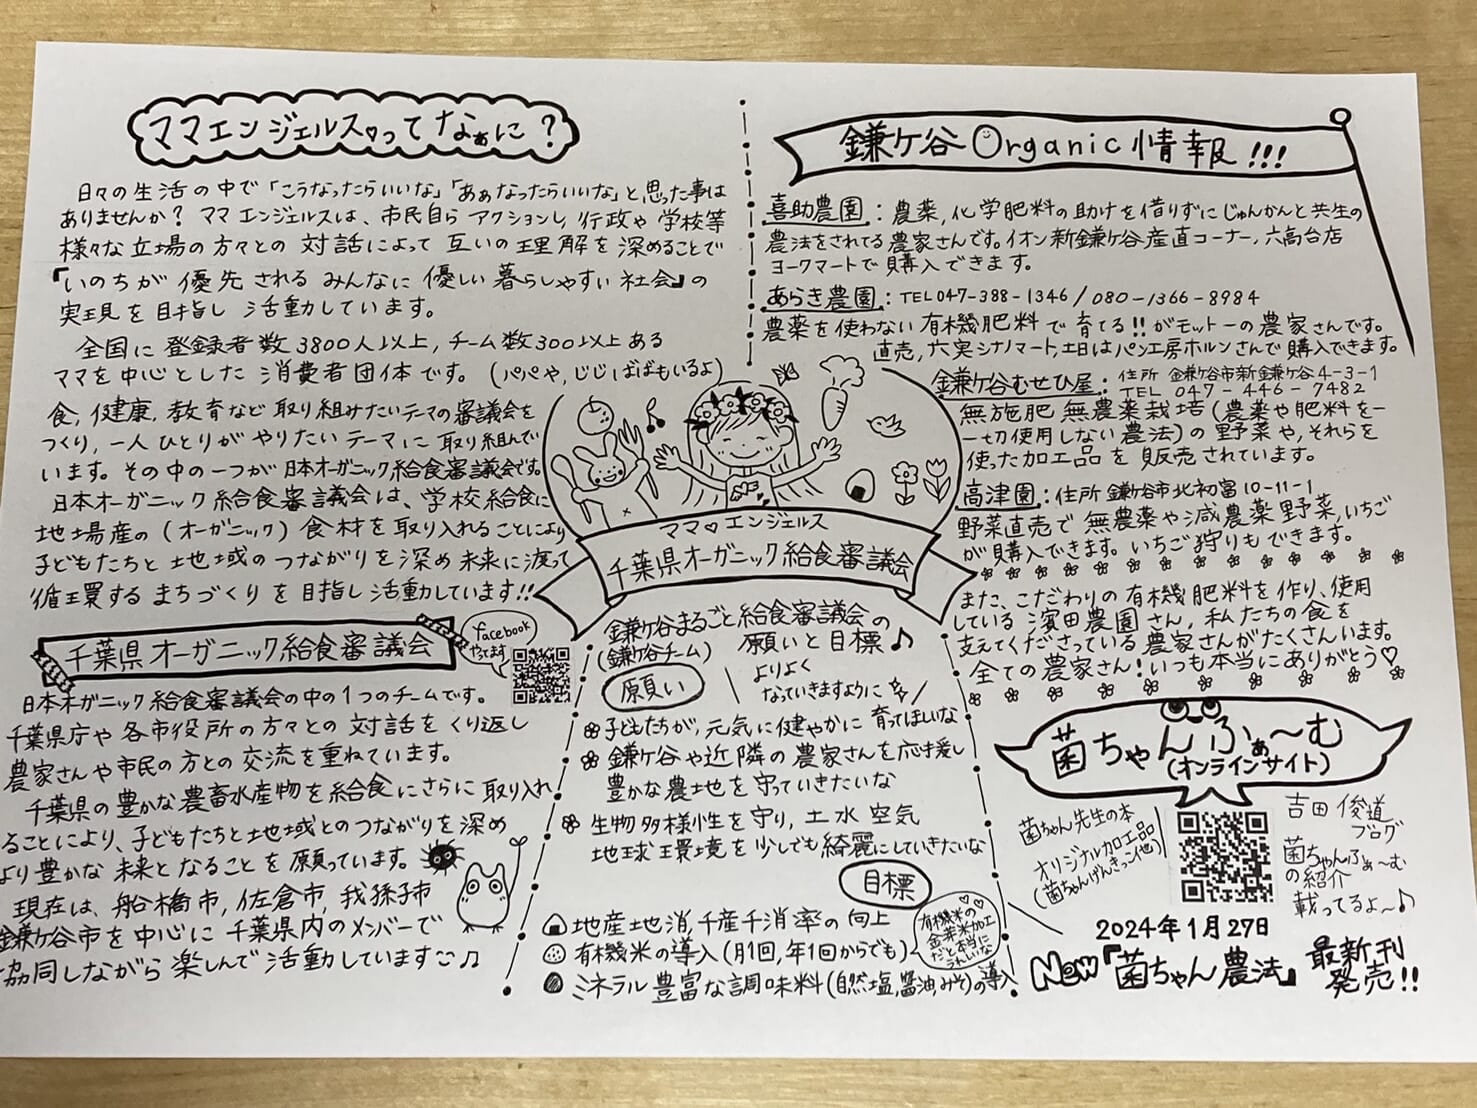 ママエンジェルス♡ってなぁに？
日々の生活の中で「こうなったらいいな」「あぁなったらいいな」と思った事は
ありませんか？ママエンジェルスは、市民自らアクションし、行政や学校等
様々な立場の方々との対話によって互いの理解を深めることで
『いのちが優先されるみんなに優しい暮らしやすい社会』の
実現を目指し活動しています。
全国に登録者数3800人以上，チーム数300以上ある
ママを中心とした消費者団体です。（パパや，じじばばもいるよ）
食，健康，教育など取り組みたいテーマの審議会を
つくり，一人ひとりがやりたいテーマに取り組んで
います。その中の一つが日本オーガニック給食審議会です。
日本オーガニック給食審議会は、学校給食に
地場産の（オーガニック）食材を取り入れることにより
子どもたちと地域のつながりを深め未来に渡って
循環するまちづくりを目指し活動しています!!
千葉県オーガニック給食審議会
facebook
やってます
日本オーガニック給食審議会の中の1つのチームです。
千葉県庁や各市役所の方々との対話をくり返し
農家さんや市民の方との交流を重ねています。
千葉県の豊かな農畜水産物を給食にさらに取り入れ
ることにより、子どもたちと地域とのつながりを深め
より豊かな未来となることを願っています。
現在は、船橋市，佐倉市，我孫子市
鎌ケ谷市を中心に千葉県内のメンバーで
協同しながら楽しんで活動しています♫
ママ♡エンジェルス
千葉県オーガニック給食審議会
鎌ケ谷まるごと給食審議会の
（鎌ケ谷チーム）
願いと目標♪
願い
よりよく
なっていきますように
子どもたちが，元気に健やかに育ってほしいな
鎌ケ谷や近隣の農家さんを応援し
豊かな農地を守っていきたいな
生物多様性を守り，土水空気
地球環境を少しでも綺麗にしていきたいな
目標
地産地消，千産千消率の向上
有機米の導入（月1回，年1回からでも）
有機米の
金芽米加工
だと本当に
うれしいな
ミネラル豊富な調味料（自然塩，醤油，みそ）の導入
鎌ケ谷Organic情報!!!
喜助農園：農薬，化学肥料の助けを借りずにじゅんかんと共生の
農法をされてる農家さんです。イオン新鎌ケ谷産直コーナー，六高台店
ヨークマートで購入できます。
あらき農園：TEL047-388-1346/080-1366-8984
農薬を使わない有機肥料で育てる!!がモットーの農家さんです。
直売，六実シナノマート，土日はパン工房ホルンさんで購入できます。
鎌ケ谷むせひ屋：住所 鎌ケ谷市新鎌ケ谷4-3-1
TEL 047-446-7482
無施肥無農薬栽培（農薬や肥料を一
一切使用しない農法）の野菜や，それらを
使った加工品を販売されています。
高津園：住所 鎌ケ谷市北初富10-11-1
野菜直売で無農薬や減農薬野菜，いちご
が購入できます。いちご狩りもできます。
また、こだわりの有機肥料を作り、使用
している濱田農園さん，私たちの食を
支えてくださっている農家さんがたくさんいます。
全ての農家さん！いつも本当にありがとう♡
菌ちゃんふぁ〜む
（オンラインサイト）
菌ちゃん先生の本
オリジナル加工品
（菌ちゃんげんきっこ他）
吉田俊道
ブログ
菌ちゃんふぁ〜む
の紹介
載ってるよ〜♪
2024年1月27日
New『菌ちゃん農法』
最新刊
発売!!